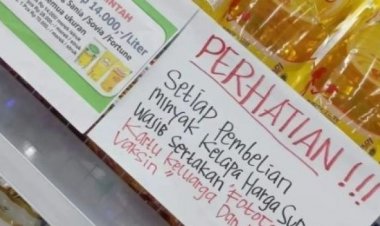 14.000,-/Liter
Sania /Sovia /Fortune
PERHATIAN !!!
Setiap Pembelian
minyak Kelapa Harga Su
Wajib Sertakan "Fotoc
Kartu Keluarga Dan
Vaksin"